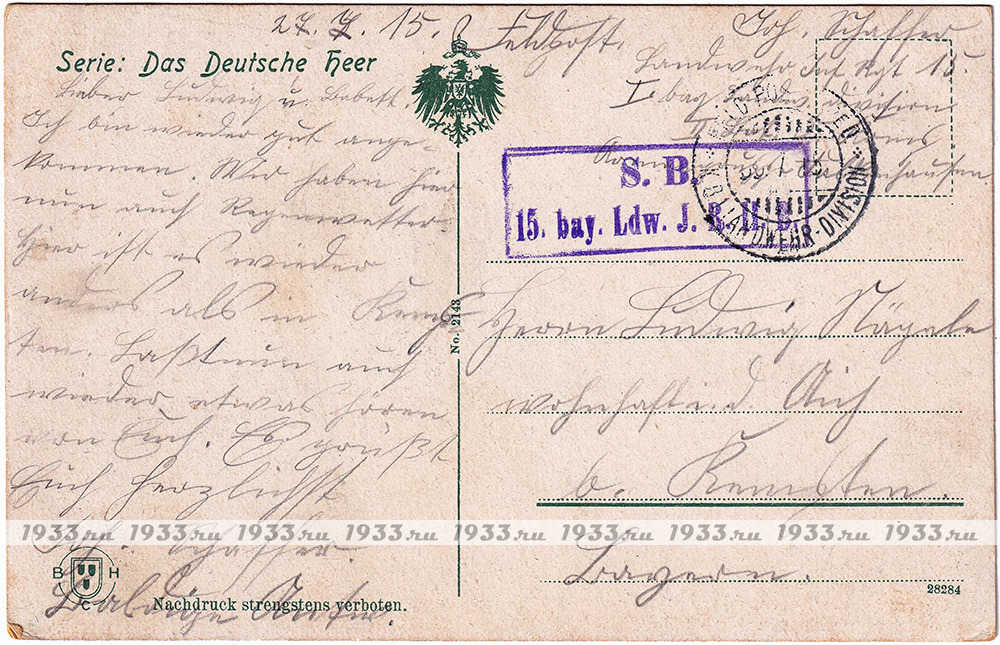 27. 7. 15. Feldpost.
Serie: Das Deutsche Heer
Lieber Ludwig u. Babett.
Ich bin wieder gut ange-
kommen. Wir haben hier
nun auch Regenwetter
hier ist es wieder
anders als in Kemp-
ten. Laßt nun auch
wieder etwas hören
von Euch. Es grüßt
Euch herzlichst
Joh. Schaffer
B H
C
Nachdruck strengstens verboten.
No. 2143
Joh. Schaffer
Landwehr Inf Rgt 15.
I. bay. Landw. division
S. B.
15. bay. Ldw. J. R. II B.
LANDWEHR-DIVISION
Herrn Ludwig Nägele
wohnhaft i. d. Aich
b. Kempten.
Bayern.
28284
1933.ru 1933.ru 1933.ru 1933.ru 1933.ru 1933.ru 1933.ru 1933.ru